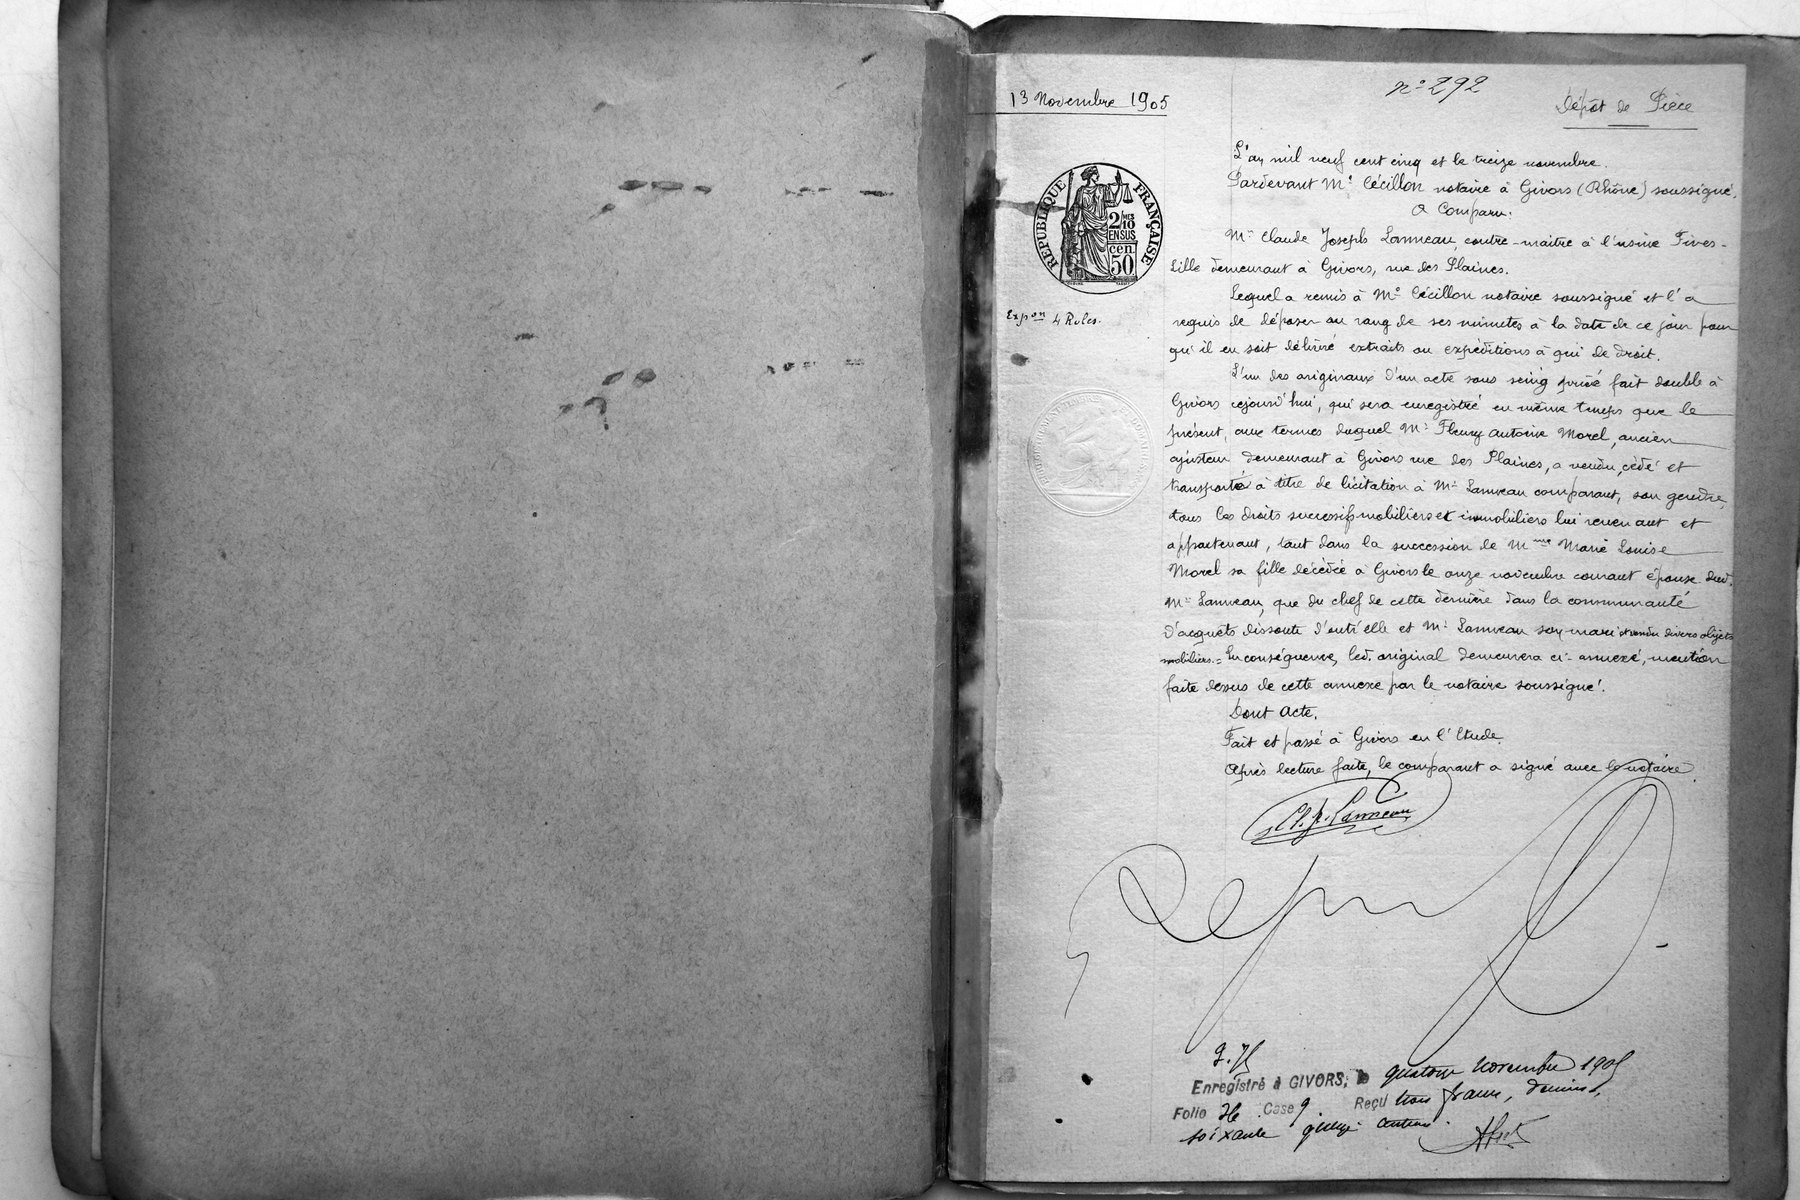 n° 292
13 Novembre 1905
Dépôt de Pièce
RÉPUBLIQUE FRANÇAISE
2/10 MES
EN SUS
cen
50
Expon 4 Roles.
L'an mil neuf cent cinq et le treize novembre.
Pardevant Me Cécillon notaire à Givors (Rhône) soussigné.
A Comparu:
Mr Claude Joseph Lanneau, contre-maître à l'usine Fives-
Lille demeurant à Givors, rue des Plaines.
Lequel a remis à Me Cécillon notaire soussigné et l'a
requis de déposer au rang de ses minutes à la date de ce jour pour
qu'il en soit délivré extraits ou expéditions à qui de droit.
L'un des originaux d'un acte sous seing privé fait double à
Givors cejourd'hui, qui sera enregistré en même temps que le
présent, aux termes duquel Mr Fleury Antoine Morel, ancien
ajusteur demeurant à Givors rue des Plaines, a vendu, cédé et
transporté à titre de licitation à Mr Lanneau comparant, son gendre,
tous les droits successifs mobiliers et immobiliers lui revenant et
appartenant, tant dans la succession de Mme Marie Louise
Morel sa fille décédée à Givors le onze novembre courant épouse dud.
Mr Lanneau, que du chef de cette dernière dans la communauté
d'acquêts dissoute d'entr'elle et Mr Lanneau son mari et vendu divers objets
mobiliers.= En conséquence, led. original demeurera ci-annexé, mention
faite dessus de cette annexe par le notaire soussigné.
Dont Acte.
Fait et passé à Givors en l'Etude.
Après lecture faite, le comparant a signé avec le notaire.
Cl. J. Lanneau
3.75
Enregistré à GIVORS, le quatorze novembre 1905
Folio 36 Case 9 Reçu trois francs, décimes,
soixante quinze centimes.